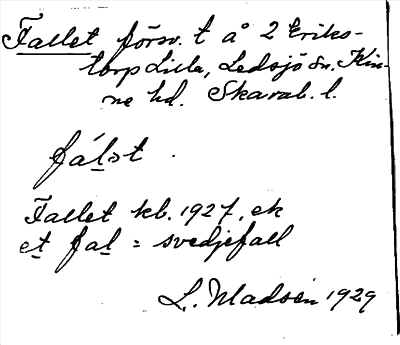 Fallet försv. t å 2 Eriks-
torp Lilla, Ledsjö sn. Kin-
ne hd. Skarab. l.
fálət
Fallet kb. 1927, ek
et fal = svedjefall
L. Madsén 1929